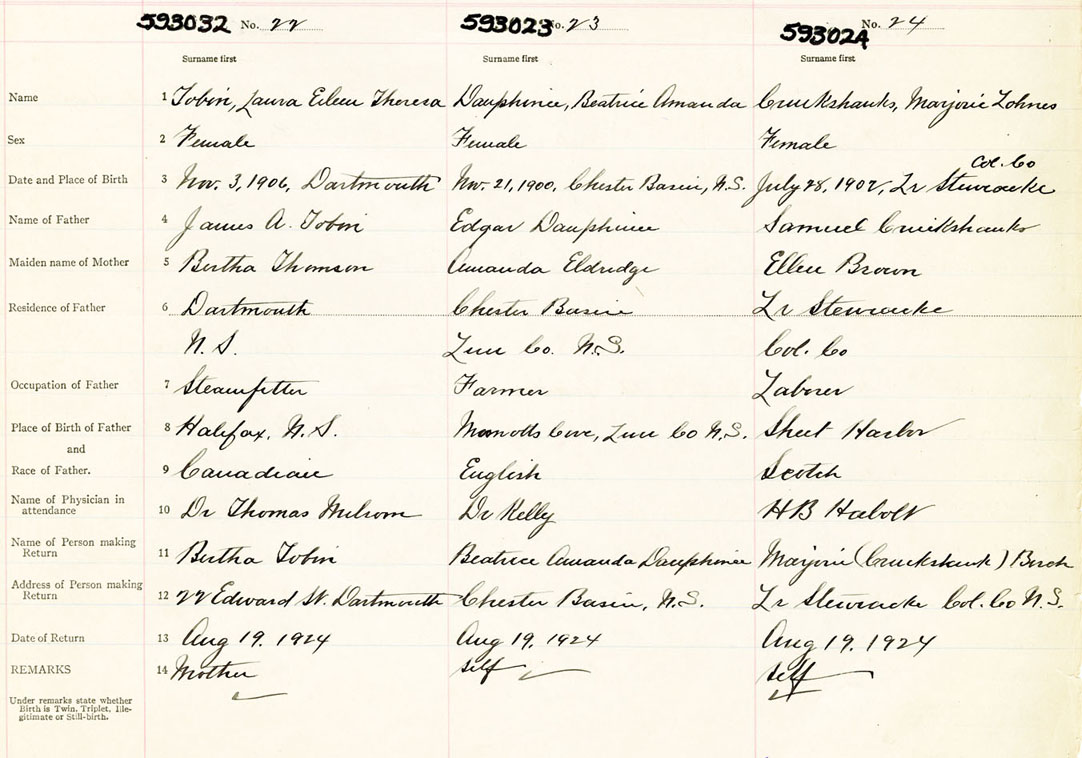 593032 No. 22 593023 No. 23 593024 No. 24
Surname first Surname first Surname first
Name 1 Tobin, Laura Eileen Theresa Dauphinee, Beatrice Amanda Cruikshanks, Marjorie Lohnes
Sex 2 Female Female Female
Col. Co
Date and Place of Birth 3 Nov. 3, 1906, Dartmouth Nov. 21, 1900, Chester Basin, N.S. July 28, 1902, Lr Stewiacke
Name of Father 4 James A. Tobin Edgar Dauphinee Samuel Cruikshanks
Maiden name of Mother 5 Bertha Thomson Amanda Eldredge Ellen Brown
Residence of Father 6 Dartmouth Chester Basin Lr Stewiacke
N.S. Lun Co. N.S. Col. Co
Occupation of Father 7 Steamfitter Farmer Laborer
Place of Birth of Father 8 Halifax, N.S. Cove, Lun Co N.S. Sheet Harbor
and
Race of Father. 9 Canadian English Scotch
Name of Physician in
attendance 10 Dr Thomas Dr Kelly HB
Name of Person making
Return 11 Bertha Tobin Beatrice Amanda Dauphinee Marjorie (Cruikshank)
Address of Person making
Return 12 22 Edward St. Dartmouth Chester Basin, N.S. Lr Stewiacke Col. Co N.S.
Date of Return 13 Aug 19, 1924 Aug 19, 1924 Aug 19, 1924
REMARKS 14 Mother Self Self
Under remarks state whether
Birth is Twin, Triplet, Ille-
gitimate or Still-birth.